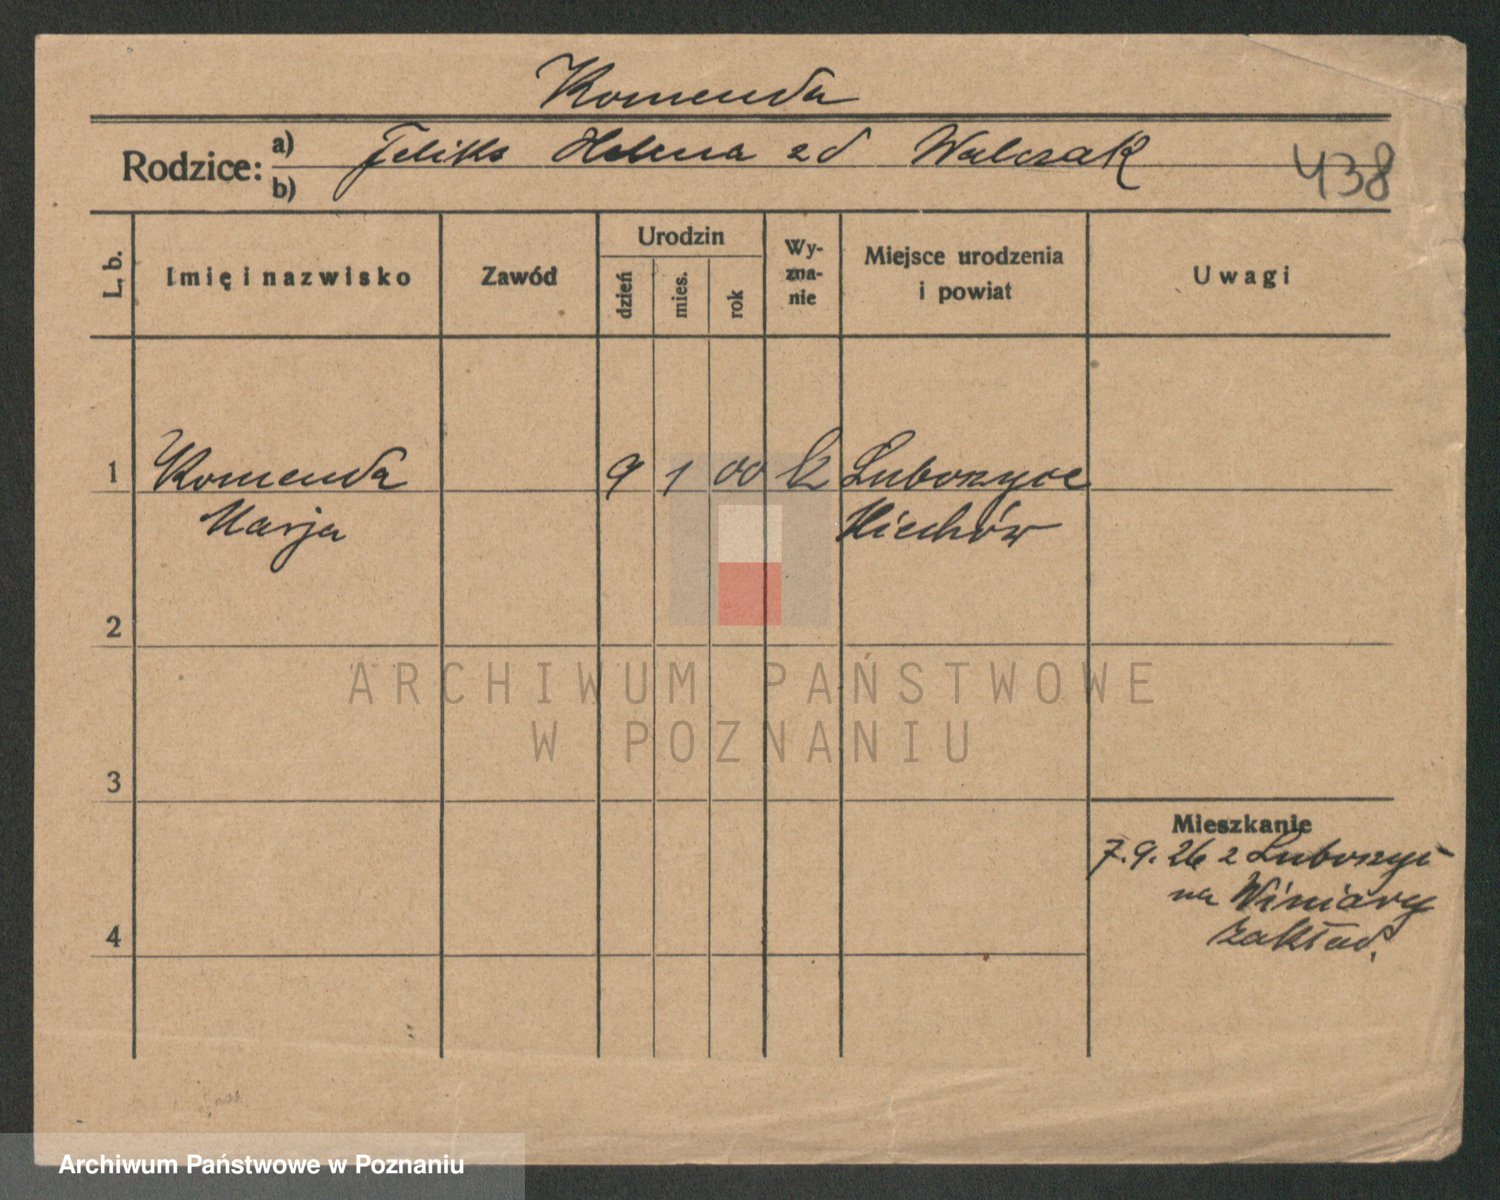 Komenda
Rodzice: a) Feliks Helena zd Walczak
b)
438
L. b.
Imię i nazwisko
Zawód
Urodzin
dzień
mies.
rok
Wy-
zna-
nie
Miejsce urodzenia
i powiat
Uwagi
1 Komenda 9 1 00 k Luborzyce
Marja Miechów
2
3
4
Mieszkanie
7.9.26 z Luborzyc
na Winiary
zakład.
ARCHIWUM PAŃSTWOWE
W POZNANIU
Archiwum Państwowe w Poznaniu